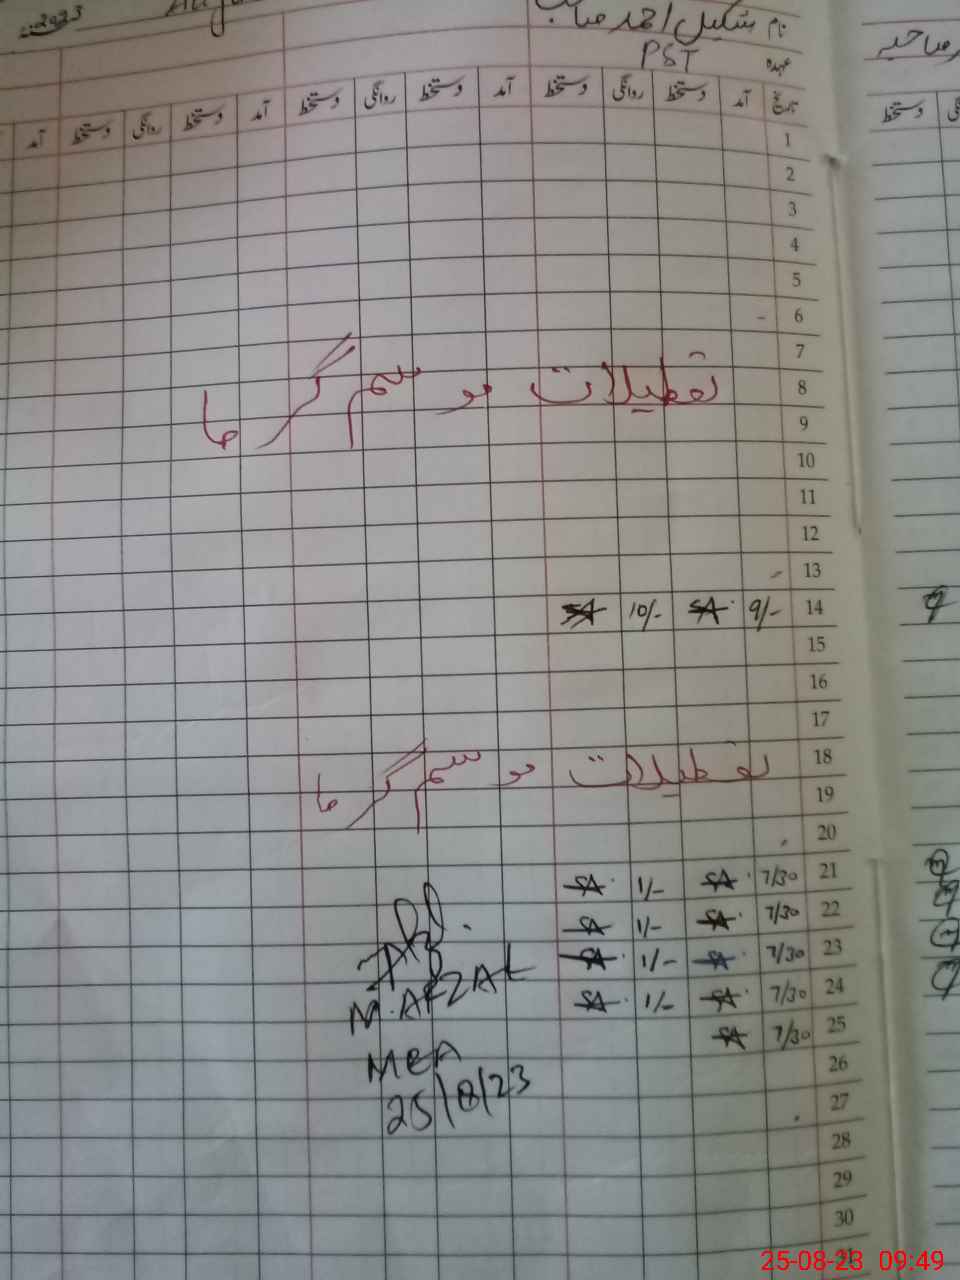 2023
نام شکیل احمد صاحب
عہدہ PST
تاریخ آمد دستخط روانگی دستخط آمد دستخط روانگی دستخط آمد دستخط روانگی دستخط آمد
دستخط
1
2
3
4
5
6
7
8 تعطیلات موسم گرما
9
10
11
12
13
14 9/- SA 10/- SA
15
16
17
18 تعطیلات موسم گرما
19
20
21 7/30 SA 1/- SA
22 7/30 SA 1/- SA
23 7/30 SA 1/- SA
24 7/30 SA 1/- SA
25 7/30 SA
M. AFZAL
MEA
25/8/23
26
27
28
29
30
31
25-08-23 09:49